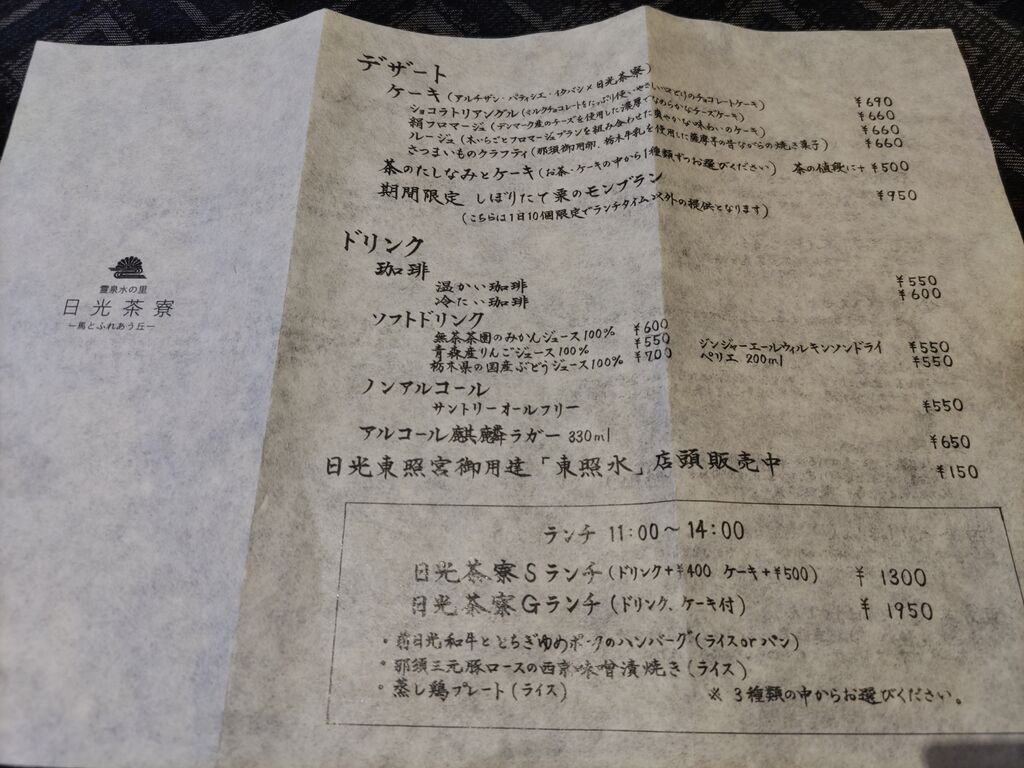 霊泉水の里
日光茶寮
ー馬とふれあう丘ー
デザート
ケーキ(アルチザン・パティシエ・イタバシ×日光茶寮)
ショコラトリアングル(ミルクチョコレートをたっぷり使いやさしい口どけのチョコレートケーキ) ¥690
絹フロマージュ(デンマーク産のチーズを使用した濃厚でなめらかなチーズケーキ) ¥660
ルージュ(木いちごとフロマージュブランを組み合わせた爽やかな味わいのケーキ) ¥660
さつまいものクラフティ(那須御用卵、栃木牛乳を使用した薩摩芋の昔ながらの焼き菓子) ¥660
茶のたしなみとケーキ(お茶・ケーキの中から1種類ずつお選びください) 茶の値段に+¥500
期間限定 しぼりたて栗のモンブラン ¥950
(こちらは1日10個限定でランチタイム以外の提供となります)
ドリンク
珈琲
温かい珈琲 ¥550
冷たい珈琲 ¥600
ソフトドリンク
無茶茶園のみかんジュース100% ¥600 ジンジャーエールウィルキンソンドライ ¥550
青森産りんごジュース100% ¥550 ペリエ 200ml ¥550
栃木県の国産ぶどうジュース100% ¥700
ノンアルコール
サントリーオールフリー ¥550
アルコール麒麟ラガー 330ml ¥650
日光東照宮御用達「東照水」店頭販売中 ¥150
ランチ 11:00〜14:00
日光茶寮Sランチ(ドリンク+¥400 ケーキ+¥500) ¥1300
日光茶寮Gランチ(ドリンク、ケーキ付) ¥1950
・前日光和牛ととちぎゆめポークのハンバーグ(ライスorパン)
・那須三元豚ロースの西京味噌漬焼き(ライス)
・蒸し鶏プレート(ライス) ※3種類の中からお選びください。